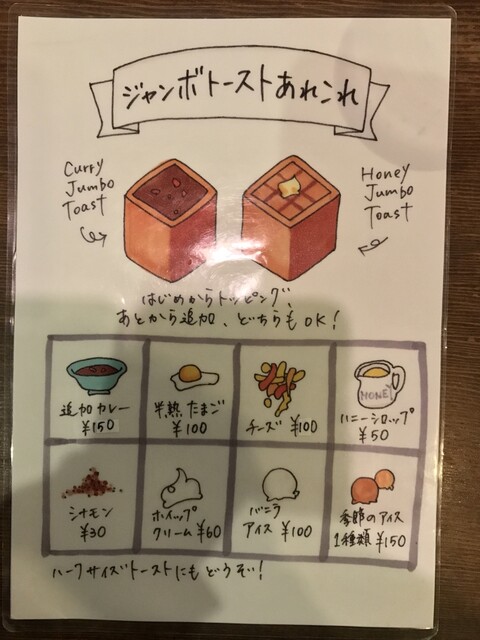 ジャンボトーストあれこれ
Curry
Jumbo
Toast
Honey
Jumbo
Toast
はじめからトッピング、
あとから追加、どちらもOK!
追加カレー
¥150
半熟たまご
¥100
チーズ ¥100
HONEY
ハニーシロップ
¥50
シナモン
¥30
ホイップ
クリーム ¥60
バニラ
アイス ¥100
季節のアイス
1種類 ¥150
ハーフサイズトーストにもどうぞ!